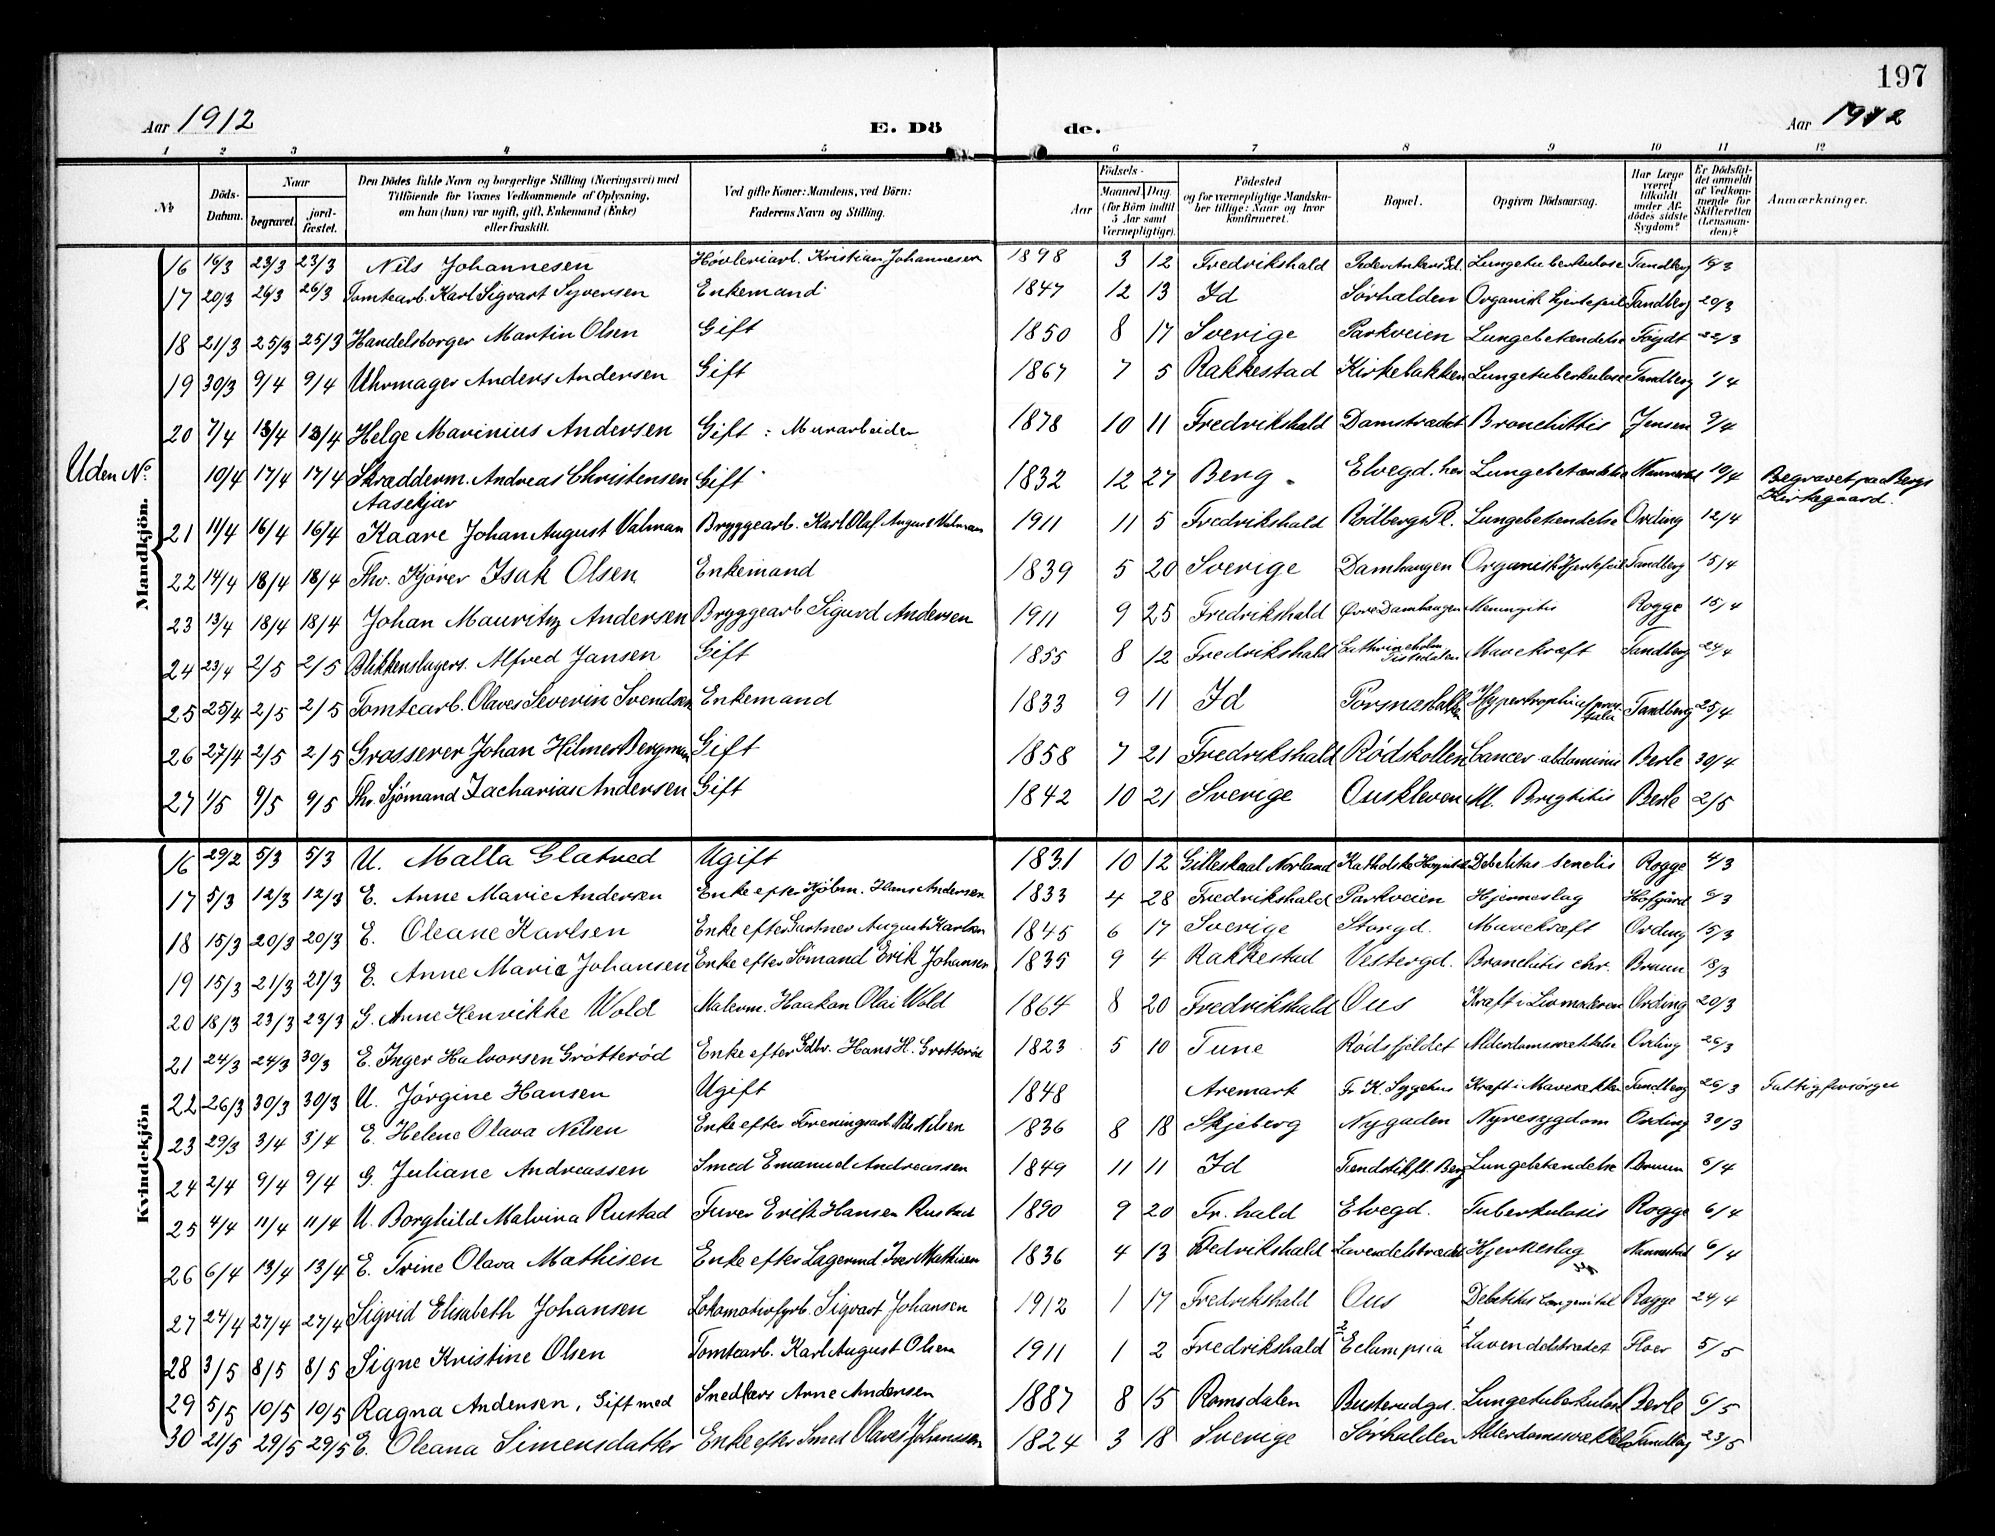 197
Aar 1912 E. Dö de. Aar 1912
1 2 3 4 5 6 7 8 9 10 11 12
No
Döds-Datum.
Naar
begravet.
jord-fæstet.
Den Dödes fulde Navn og borgerlige Stilling (Næringsvei) med
Tilföiende for Voxnes Vedkommende af Oplysning,
om han (hun) var ugift, gift, Enkemand (Enke)
eller fraskilt.
Ved gifte Koner: Mandens, ved Börn:
Faderens Navn og Stilling.
Födsels-
Aar
Maaned Dag.
(for Börn indtil
5 Aar samt
Værnepligtige).
Födested
og for værnepligtige Mandsku-
ber tillige: Naar og hvor
konfirmeret.
Bopæl.
Opgiven Dödsaarsag.
Har Læge
været
tilkaldt
under Af-
dödes sidste
Sygdom?
Er Dödsfal-
det anmeldt
af Vedkom-
mende for
Skifteretten
(Lensman-
den)?
Anmærkninger.
Mandkjön.
16 16/3 23/3 23/3 Nils Johannesen Høvleriarb. Kristian Johannesen 1898 3 12 Fredrikshald Peder Ankers Pl. Lungetuberkulose Tandberg 19/3
17 20/3 26/3 26/3 Tomtearb. Karl Sigvart Syversen Enkemand 1847 12 13 Id Sørhalden Organisk Hjertefeil Tandberg 20/3
18 21/3 25/3 25/3 Handelsborger Martin Olsen Gift 1850 8 17 Sverige Parkveien Lungebetændelse Foydt 22/3
19 30/3 9/4 9/4 Uhrmager Anders Andersen Gift 1867 7 5 Rakkestad Kirkebakken Lungetuberkulose Tandberg 1/4
20 7/4 13/4 13/4 Helge Marinius Andersen Gift : Murarbeider 1878 10 11 Fredrikshald Damstrædet Bronchittis Jensen 9/4
Uden No. 10/4 17/4 17/4 Skrædderm. Andreas Christensen Gift 1832 12 27 Berg Elvegd. her Lungebetændelse 10/4 Begravet paa Bergs
Aasekjær Kirkegaard.
21 11/4 16/4 16/4 Kaare Johan August Valman Bryggearb. Karl Olaf August Valman 1911 11 5 Fredrikshald Rødbergs Pl. Lungebetændelse Ording 12/4
22 14/4 18/4 18/4 Fhv. Kjører Isak Olsen Enkemand 1839 5 20 Sverige Damhaugen Organisk Hjertefeil Tandberg 15/4
23 13/4 18/4 18/4 Johan Mauritz Andersen Bryggearb Sigurd Andersen 1911 9 25 Fredrikshald Øvre Damhaugen Meningitis Rogge 15/4
24 23/4 2/5 2/5 Blikkenslagers. Alfred Jansen Gift 1855 8 12 Fredrikshald Cathrineholm Tistedalen Mavekræft Tandberg 24/4
25 25/4 2/5 2/5 Tomtearb. Olaves Severin Svendsen Enkemand 1833 9 11 Id Porsnæsbakken Hypertrophia prostata Tandberg 25/4
26 27/4 2/5 2/5 Grosserer Johan Hilmer Bergman Gift 1858 7 21 Fredrikshald Rødskollen Cancer abdominis Berle 30/4
27 1/5 9/5 9/5 Fhv. Sjömand Zacharias Andersen Gift 1842 10 21 Sverige Ouskleven M. Brigtitis Berle 2/5
Kvindekjön
16 29/2 5/3 5/3 U. Malla Glatved Ugift 1831 10 12 Gilleskaal Norland Katholske Hospital Debelitas senelis Rogge 4/3
17 5/3 12/3 12/3 E. Anne Marie Andersen Enke efter Kjølm. Hans Andersen 1833 4 28 Fredrikshald Parkveien Hjerneslag Hofgård 6/3
18 15/3 20/3 20/3 E. Oleane Karlsen Enke efter Gartner August Karlsen 1845 6 17 Sverige Storgd. Mavekræft Ording 15/3
19 15/3 21/3 21/3 E. Anne Marie Johansen Enke efter Sömand Erik Johansen 1835 9 4 Rakkestad Vestergd. Bronchitis chr. Bruun 18/3
20 18/3 23/3 23/3 G. Anne Henrikke Wold Malerm. Haakon Olai Wold 1864 8 20 Fredrikshald Ous Kræft i Livmoderen Ording 20/3
21 24/3 24/3 30/3 E. Inger Halvorsen Grøtterød Enke efter Gdbr. Hans H. Grøtterød 1823 5 10 Tune Rødsfjeldet Alderdomssvækkelse Ording 26/3
22 26/3 30/3 30/3 U. Jørgine Hansen Ugift 1848 Aremark Fr. H. Sygehus Kræft i Mavesækken Tandberg 26/3 Fattigforsørget
23 29/3 3/4 3/4 E. Helene Olava Nilsen Enke efter Foreningsarb. Nils Nilsen 1836 8 18 Skjeberg Nygaden Nyresygdom Ording 30/3
24 2/4 9/4 9/4 G. Juliane Andreassen Smed Emanuel Andreassen 1849 11 11 Id Tændstikfb. Berg Lungebetændelse Bruun 6/4
25 4/4 11/4 11/4 U. Borghild Malvina Rustad Furer Erik Hansen Rustad 1890 9 20 Fr. hald Elvegd. Tuberkulosis Rogge 6/4
26 6/4 13/4 13/4 E. Trine Olava Mathisen Enke efter Lagermd Iver Mathisen 1836 4 13 Fredrikshald Lavendelstrædet Hjerneslag Nannestad 6/4
27 24/4 27/4 27/4 Sigvid Elisabeth Johansen Lokomotivfyrb. Sigvart Johansen 1912 1 17 Fredrikshald Ous Debilitas Congenital Rogge 24/4
28 3/5 8/5 8/5 Signe Kristine Olsen Tomtearb. Karl August Olsen 1911 1 2 Fredrikshald 2 Eclampsia 1 Lavendelstrædet Floer 5/5
29 5/5 10/5 10/5 Ragna Andersen, Gift med Snedkers Arne Andersen 1887 8 15 Romsdalen Busterudgd. Lungetuberkulose Berle 6/5
30 21/5 29/5 29/5 E. Oleana Simensdatter Enke efter Smed Olaves Johanssen 1824 3 18 Sverige Sørhalden Alderdomssvækkelse Tandberg 23/5